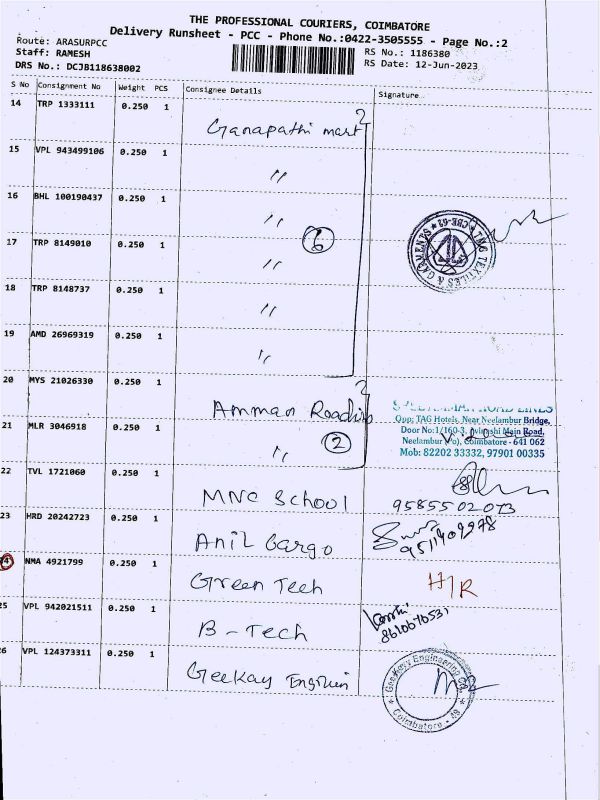 THE PROFESSIONAL COURIERS, COIMBATORE
Delivery Runsheet - PCC - Phone No.:0422-3505555 - Page No.:2
Route: ARASURPCC
RS No.: 1186380
Staff: RAMESH
RS Date: 12-Jun-2023
DRS No.: DCJB118638002
S No Consignment No Weight PCS Consignee Details Signature
14 TRP 1333111 0.250 1 Ganapathi mart
15 VPL 943499106 0.250 1 "
16 BHL 100190437 0.250 1 "
6
17 TRP 8149010 0.250 1 "
TAG TEXTILES & GARMENTS * CBE-62 *
18 TRP 8148737 0.250 1 "
19 AMD 26969319 0.250 1 "
20 MYS 21026330 0.250 1 Amman
Opp: TAG Hotels, Near Neelambur Bridge,
21 MLR 3046918 0.250 1 " 2
Door No:1/160-3, Avinashi Main Road,
Neelambur (Po), Coimbatore - 641 062
Mob: 82202 33332, 97901 00335
22 TVL 1721060 0.250 1 MNC School
9585502013
23 HRD 20242723 0.250 1 Anil Cargo
9511909978
24 NMA 4921799 0.250 1 Green Tech H/R
25 VPL 942021511 0.250 1 B-Tech
26 VPL 124373311 0.250 1 Geekay
Gee Kayy Engineering Co. * Coimbatore